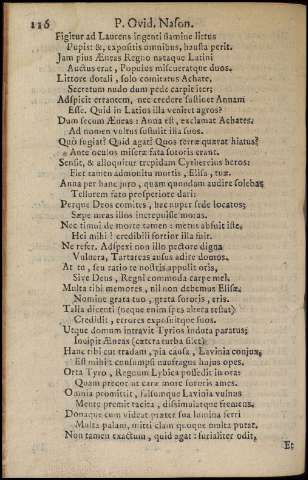 116 P. Ovid. Nason.
Figitur ad Laurens ingenti flamine littus
Puppis: &, expositis omnibus, hausta perit.
Jam pius Æneas Regno nataque Latini
Auctus erat, Populos miscueratque duos.
Littore dotali, solo comitatus Achate,
Secretum nudo dum pede carpit iter;
Adspicit errantem, nec credere sustinet Annam
Esse. Quid in Latios illa veniret agros?
Dum secum Æneas: Anna est, exclamat Achates.
Ad nomen vultus sustulit illa suos.
Quo fugiat? Quid agat? Quos terræ quærat hiatus?
Ante oculos miseræ fata sororis erant.
Sensit, & alloquitur trepidam Cythereius heros:
Flet tamen admonitu mortis, Elisa, tuæ.
Anna per hanc juro, quam quondam audire solebas
Tellurem fato prosperiore dari:
Perque Deos comites, hac nuper sede locatos;
Sæpe meas illos increpuisse moras.
Nec timui de morte tamen: metus abfuit iste,
Hei mihi! credibili fortior illa fuit.
Ne refer. Adspexi non illo pectore digna
Vulnera, Tartareas ausus adire domos.
At tu, seu ratio te nostris appulit oris,
Sive Deus, Regni commoda carpe mei.
Multa tibi memores, nil non debemus Elisæ.
Nomine grata tuo, grata sororis, eris.
Talia dicenti (neque enim spes altera restat)
Credidit, errores exposuitque suos.
Utque domum intravit Tyrios induta paratus;
Incipit Æneas (cætera turba silet):
Hanc tibi cur tradam, pia causa, Lavinia conjux,
Est mihi: consumpsi naufragus hujus opes.
Orta Tyro, Regnum Lybica possedit in ora:
Quam precor ut caræ more sororis ames.
Omnia promittit, falsumque Lavinia vulnus
Mente premit tacita, dissimulatque fremens.
Donaque cum videat præter sua lumina ferri
Multa palam, mitti clam quoque multa putat.
Non habet exactum, quid agat: furialiter odit,
Et